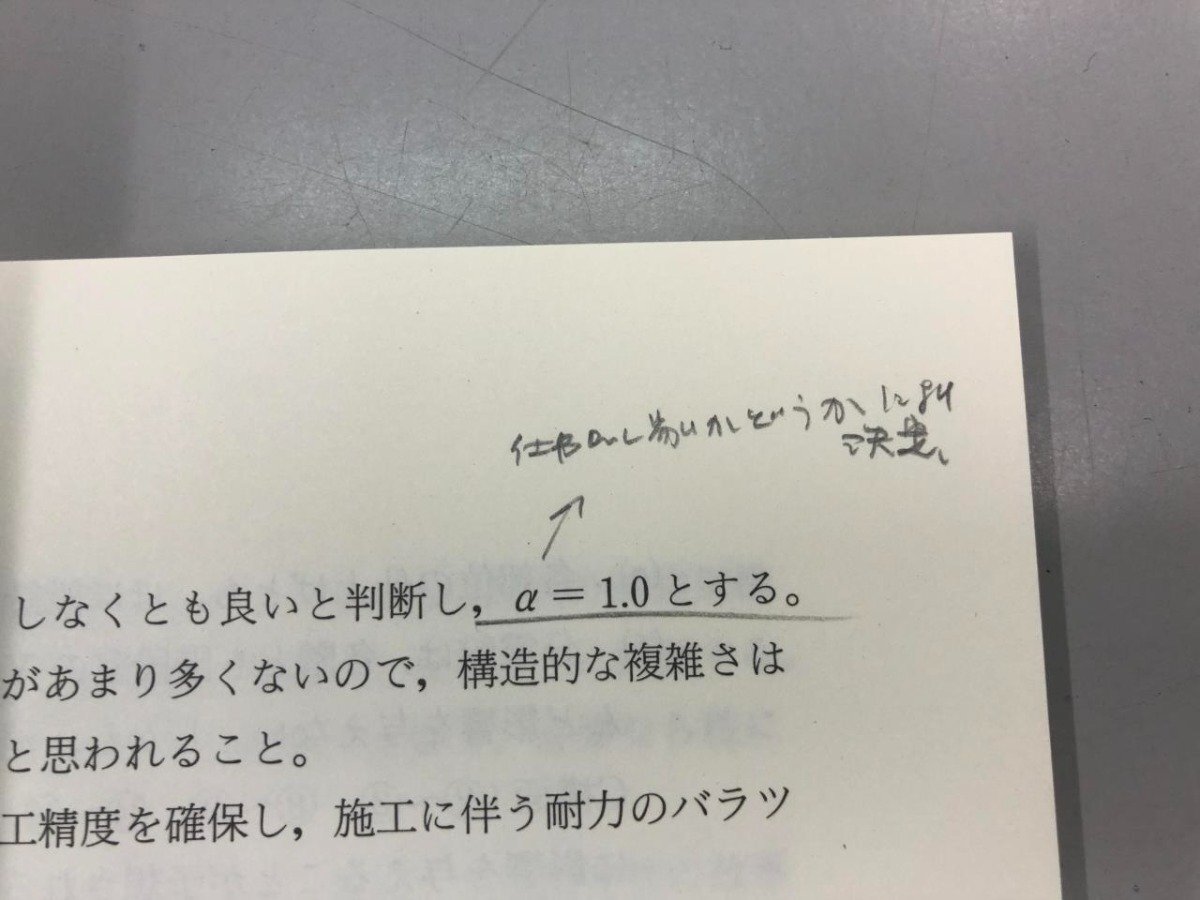 し易いかどうかにより
決定。
しなくとも良いと判断し，α＝1.0とする。
があまり多くないので，構造的な複雑さは
と思われること。
工精度を確保し，施工に伴う耐力のバラツ